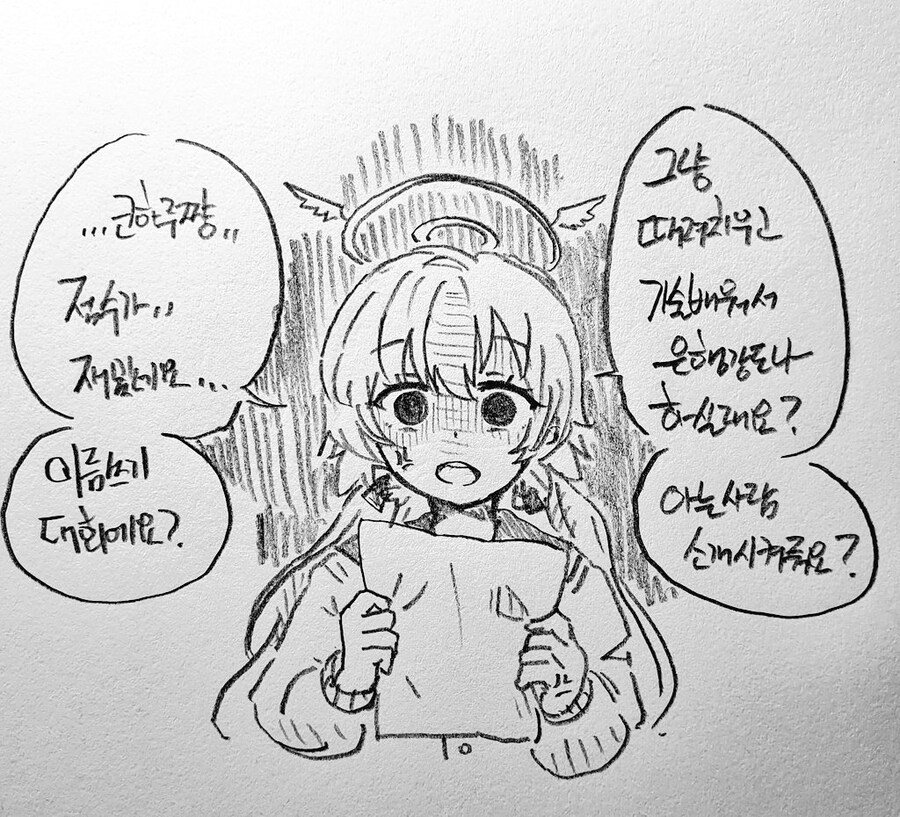 ...쿤하루짱..
점수가..
재밌네요...
이름쓰기
대회에요?
그냥
때려치우고
기술배워서
은행강도나
하실래요?
아는사람
소개시켜줘요?
10